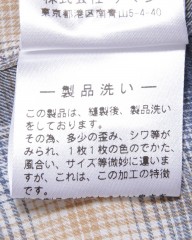 東京都港区南青山5-4-40
― 製品洗い ―
この製品は、縫製後、製品洗い
をしております。
その為、多少の歪み、シワ等が
みられ、1枚1枚の色のでかた、
風合い、サイズ等微妙に違いま
すが、これは、この加工の特徴
です。